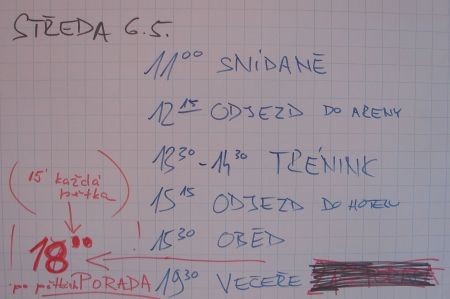 STŘEDA 6.5.
11⁰⁰ SNÍDANĚ
12¹⁵ ODJEZD DO ARENY
13³⁰ - 14³⁰ TRÉNINK
15¹⁵ ODJEZD DO HOTELU
15³⁰ OBĚD
19³⁰ VEČEŘE
(15' každá
pětka)
! 18⁰⁰ !
po pětkách PORADA